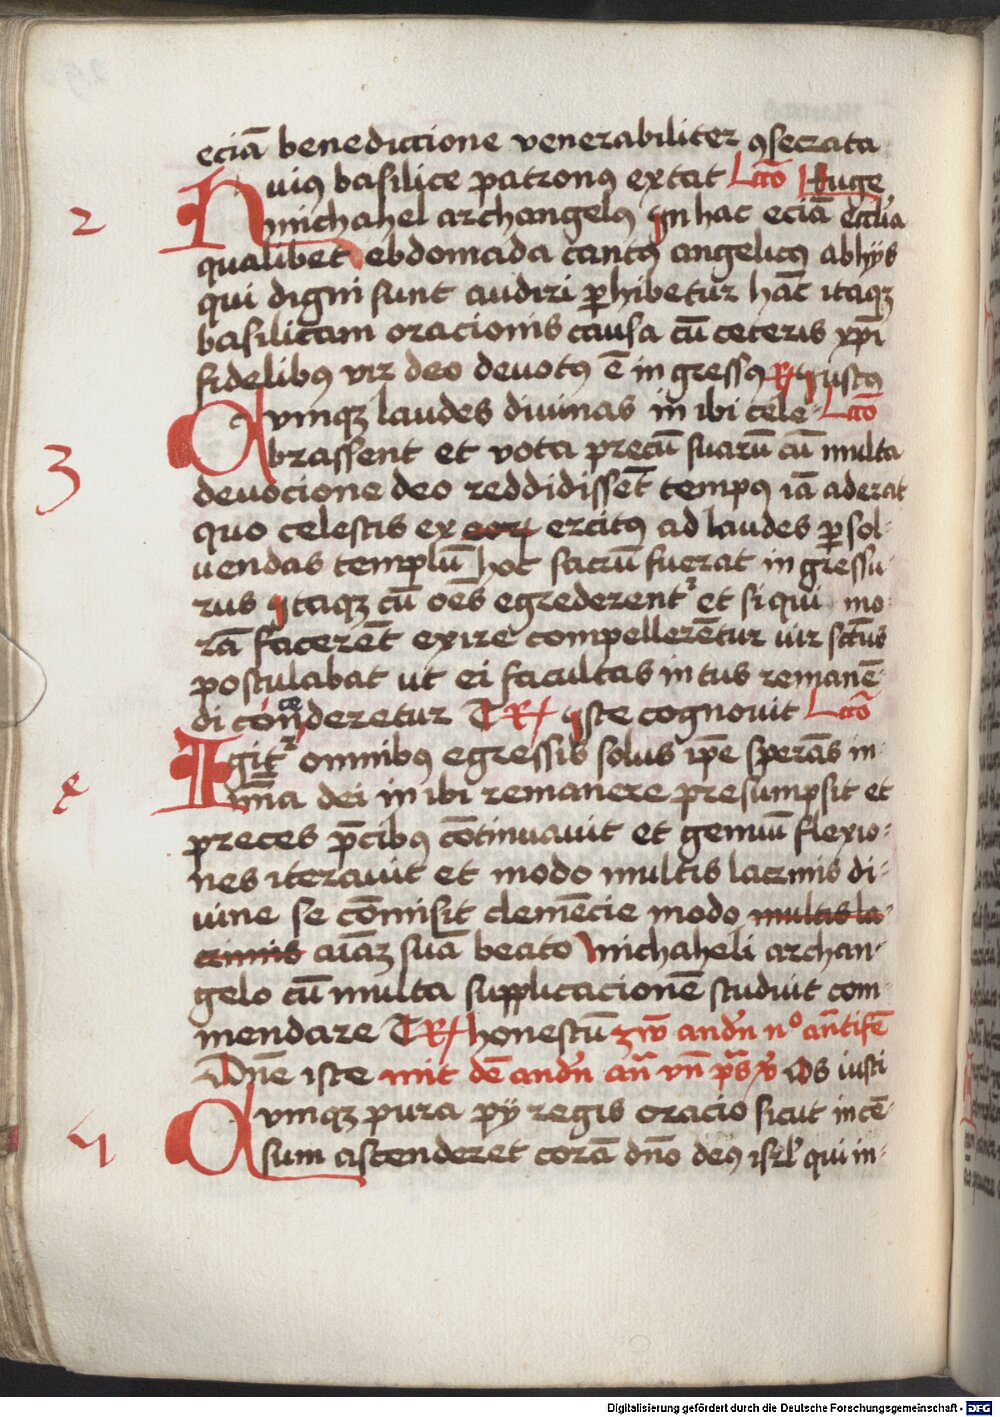 eciā benedictione venerabiliter ꝯsecrata
Huiꝰ basilice patronꝰ extat Lcō Euge
2 michahel archangelꝰ in hac eciā eccl'ia
qualibet ebdomada cantꝰ angelicꝰ ab hijs
qui digni sunt audiri ꝑhibetur hāc itaqꝫ
basilicam oracionis causa cū ceteris xp̄i
fidelibꝰ vir deo deuotꝰ ē in gressꝰ R iustꝰ
Qvmqꝫ laudes diuinas in ibi cele- Lcō
3 brassent et vota precū suarū cū multa
deuocione deo reddidissēt tempꝰ iā aderat
quo celestis ex ercitꝰ ad laudes ꝑsol-
uendas templū hoc sacrū fuerat in gressu
rus itaqꝫ cū oēs egrederent᷑ et si qui mo-
rā facerēt exire compellerētur uir sctūs
postulabat ut ei facultas in tus remanē-
di cōncederetur R iste cognouit Lcō
Igit᷑ omnibꝰ egressis solus ip̄e sperās in
4 dei in ibi remanere presumpsit et
preces p̄cibꝰ cōtinuauit et genuū flexio-
nes iterauit et modo multis lacrimis di-
uine se cōmisit clemēcie modo multis la-
crimis aīaꝫ suā beato michaheli archan-
gelo cū multa supplicacionē studuit com
mendare R honestū andn̄ nº antifē
Dn̄e iste mit dē andn̄ an̄ vn̄ p̄s Os iusti
Qvmqꝫ pura pÿ regis oracio sicut in cē-
5 sum ascenderet corā dn̄o deꝰ isrl' qui in-
Digitalisierung gefördert durch die Deutsche Forschungsgemeinschaft - DFG